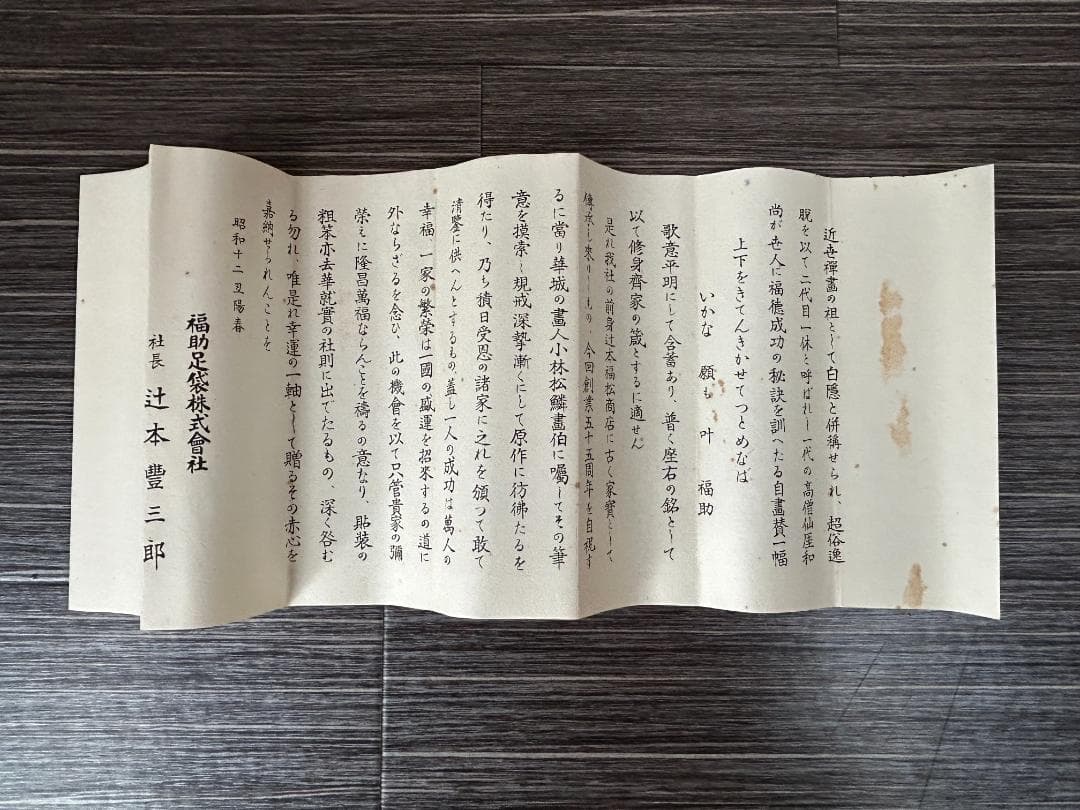 近世禪畫の祖として白隱と併稱せられ、超俗逸
脫を以て二代目一休と呼ばれし一代の高僧仙厓和
尚が世人に福德成功の秘訣を訓へたる自畫賛一幅
上下をきてんきかせてつとめなば
いかな 願も 叶 福助
歌意平明にして含蓄あり、普く座右の銘として
以て修身齊家の箴とするに適せん
是れ我社の前身辻本福松商店に古く家寶として
傳承し來りしもの、今回創業五十五周年を自祝す
るに當り華城の畫人小林松鱗畫伯に囑してその筆
意を摸索し規戒深摯漸くにして原作に彷彿たるを
得たり、乃ち積日受恩の諸家に之れを頒つて敢て
淸鑒に供へんとするもの、蓋し一人の成功は萬人の
幸福、一家の繁榮は一國の盛運を招來するの道に
外ならざるを念ひ、此の機會を以て只管貴家の彌
榮えに隆昌萬福ならんことを禱るの意なり、貼裝の
粗笨亦去華就實の社則に出でたるもの、深く咎む
る勿れ、唯是れ幸運の一軸として贈るその赤心を
嘉納せられんことを
昭和十二丑陽春
福助足袋株式會社
社長 辻本豐三郎